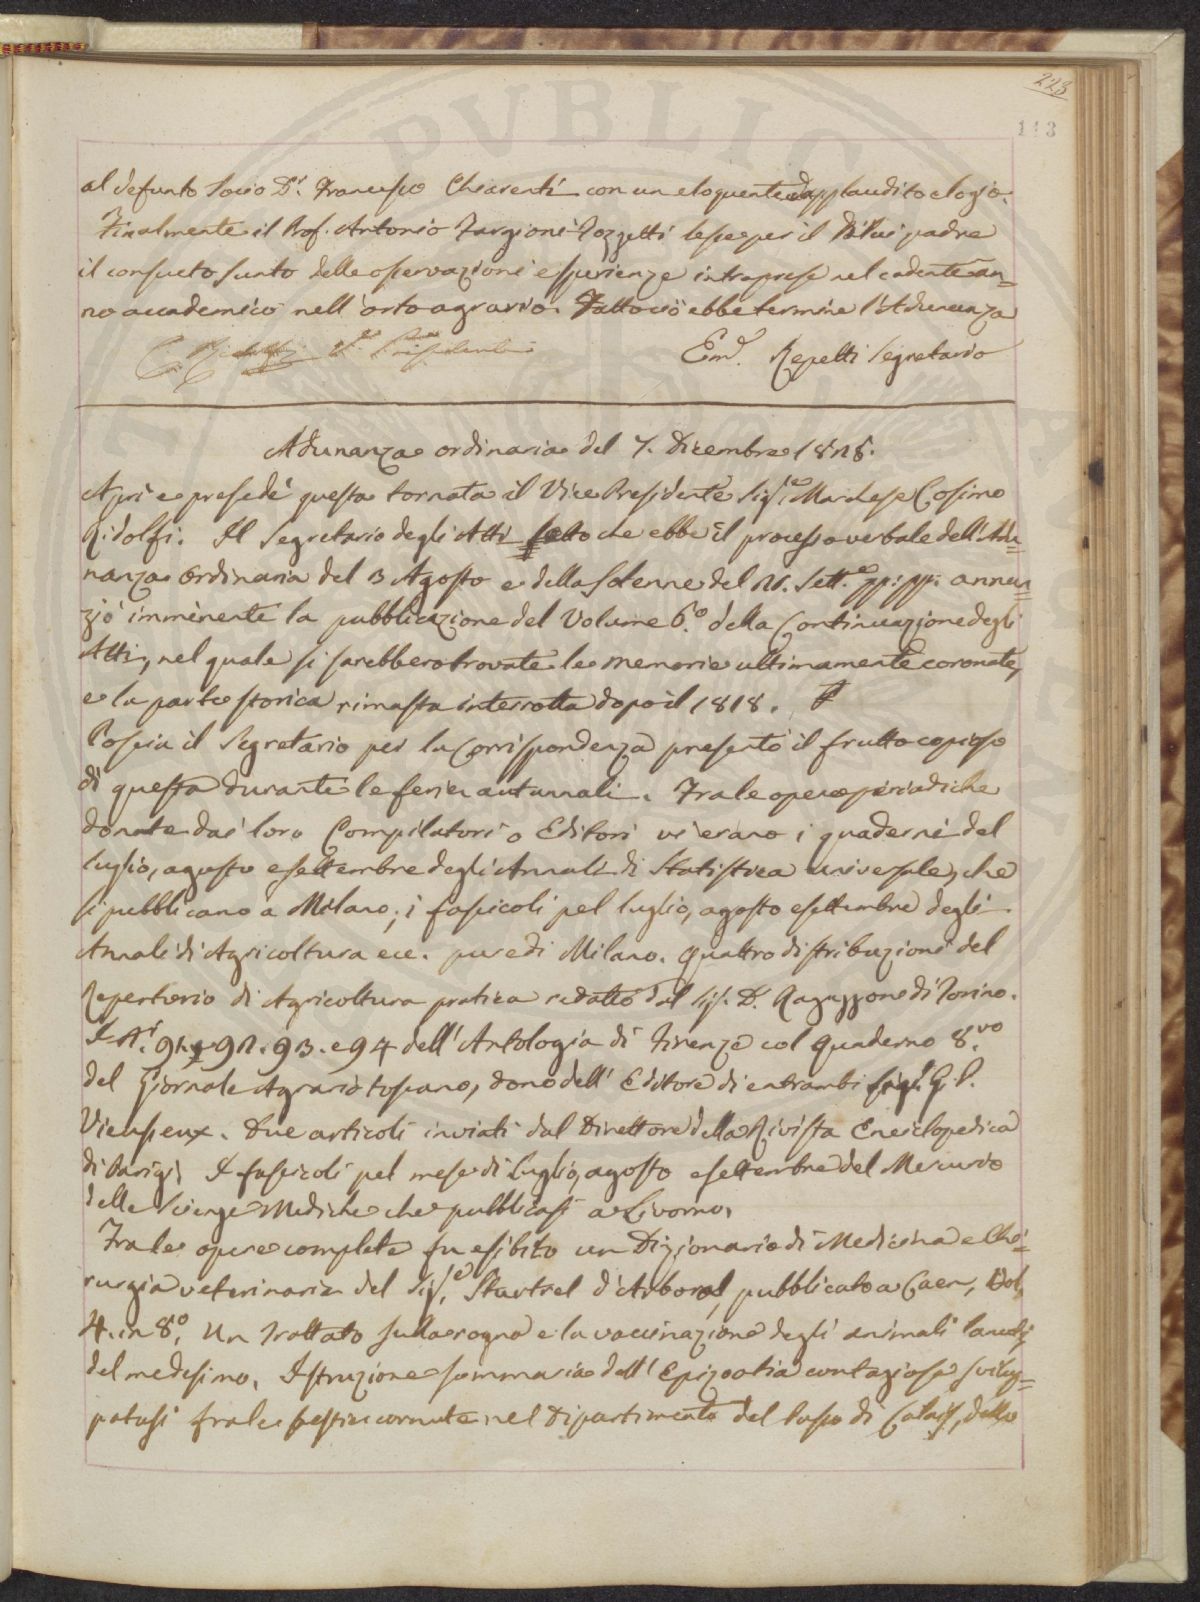 223
113
al defunto Socio Dr. Francesco Chiarenti con un eloquente ed applaudito elogio.
Finalmente il Prof. Antonio Targioni-Tozzetti lesse per il di lui padre
il consueto sunto delle osservazioni e sperienze intraprese nel cadente an=
no accademico nell'orto agrario. Fatto ciò ebbe termine l'Adunanza
C. Ridolfi V. Presidente Em.e Repetti Segretario
Adunanza ordinaria del 7. Dicembre 1828.
Aprì e presedè questa tornata il Vice Presidente Sig.e Marchese Cosimo
Ridolfi. Il Segretario degli Atti letto che ebbe il processo verbale dell'Adu=
nanza Ordinaria del 3 Agosto e della Solenne del 21. Sett.e pp: pp: annun=
ziò imminente la pubblicazione del Volume 6.o della Continuazione degli
Atti, nel quale si sarebbero trovate le memorie ultimamente coronate,
e la parte storica rimasta interrotta dopo il 1818.
Poscia il Segretario per la Corrispondenza presentò il frutto copioso
di questa durante le ferie autunnali. Fra le opere periodiche
donate dai loro Compilatori o Editori vi erano i quaderni del
luglio, agosto e settembre degli Annali di Statistica universale, che
si pubblicano a Milano; i fascicoli pel luglio, agosto e settembre degli
Annali di Agricoltura ecc. pure di Milano. Quattro distribuzioni del
Repertorio di Agricoltura pratica redatto dal Sig. D. Ragazzone di Torino.
I Nr. 91. e 92. 93. e 94 dell'Antologia di Firenze col quaderno 8.vo
del Giornale Agrario toscano, dono dell'Editore di entrambi Sig.r G. P.
Vieusseux. Due articoli inviati dal Direttore della Rivista Enciclopedica
di Parigi. I fascicoli pel mese di Luglio, agosto e settembre del Mercurio
delle Scienze Mediche che pubblicasi a Livorno.
Fra le opere complete fu esibito un Dizionario di Medicina e Chi=
rurgia veterinaria del Sig.e Hurtrel d'Arboval, pubblicato a Caen, Vol.
4. in 8.o Un Trattato sulla rogna e la vaccinazione degli animali lanuti,
del medesimo. Istruzione sommaria dell'Epizootia contagiosa svilup=
patasi fra le bestie cornute nel Dipartimento del Passo di Calais, dello